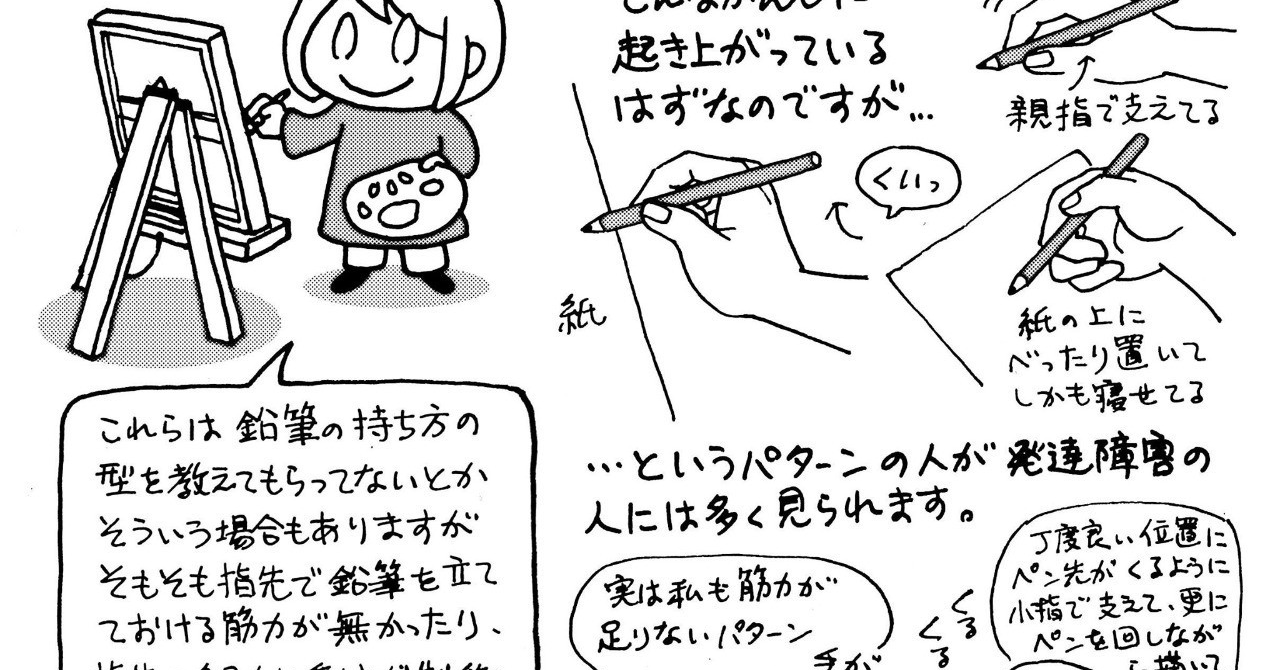 起き上がっている
はずなのですが…
親指で支えてる
くいっ
紙
紙の上に
べったり置いて
しかも寝せてる
これらは鉛筆の持ち方の
型を教えてもらってないとか
そういう場合もありますが
そもそも指先で鉛筆を立て
ておける筋力が無かったり、
…というパターンの人が発達障害の
人には多く見られます。
実は私も筋力が
足りないパターン
手が
くる
くる
丁度良い位置に
ペン先がくるように
小指で支えて、更に
ペンを回しなが